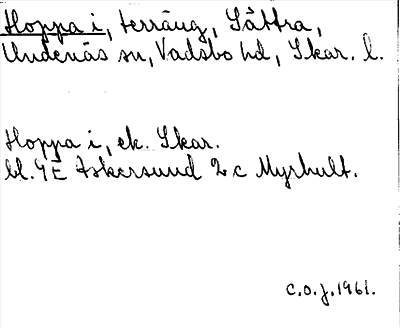 Hoppa i, terräng, Sättra,
Undenäs sn, Vadsbo hd, Skar. l.
Hoppa i, ek. Skar.
bl. 9E Askersund 2 c Myrhult.
C.O.J. 1961.